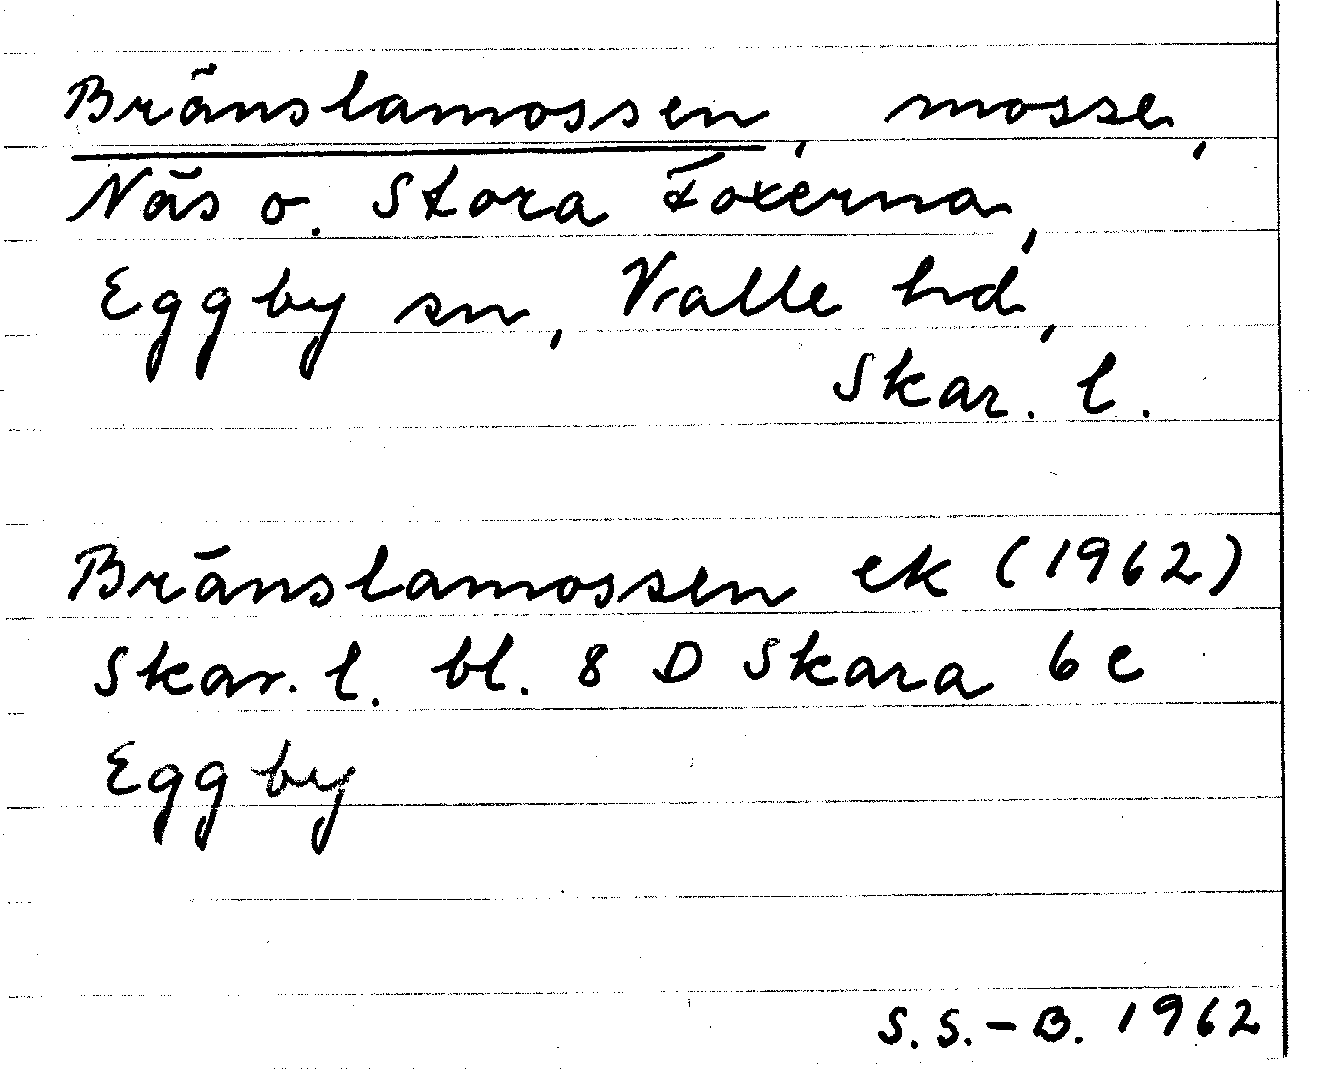 Bränslamossen, mosse,
Näs o. Stora Foxerna,
Eggby sn, Valle hd,
Skar. l.
Bränslamossen ek (1962)
Skar. l. bl. 8 D Skara 6 c
Eggby
S. S.-B. 1962